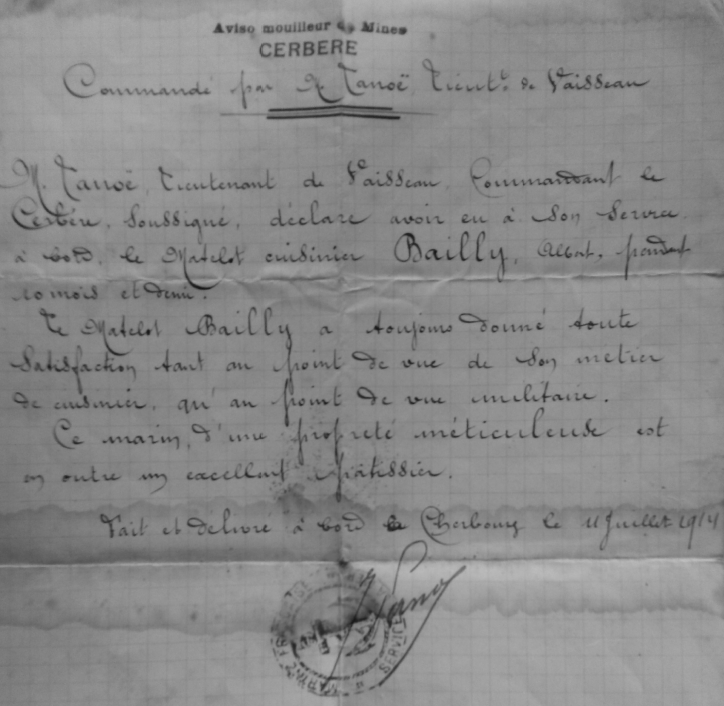 Aviso mouilleur de Mines
CERBERE
Commandé par M. Tanoë Lieutt. de Vaisseau
M. Tanoë, Lieutenant de Vaisseau, Commandant le
Cerbère, Soussigné, déclare avoir eu à Son Service
à bord, le Matelot cuisinier Bailly, Albert, pendant
10 mois et demi.
Le Matelot Bailly a toujours donné toute
Satisfaction tant au point de vue de Son métier
de cuisinier, qu'au point de vue militaire.
Ce marin, d'une propreté méticuleuse est
en outre un excellent pâtissier.
Fait et délivré à bord Cherbourg le 11 Juillet 1914
MARINE
SERVICE